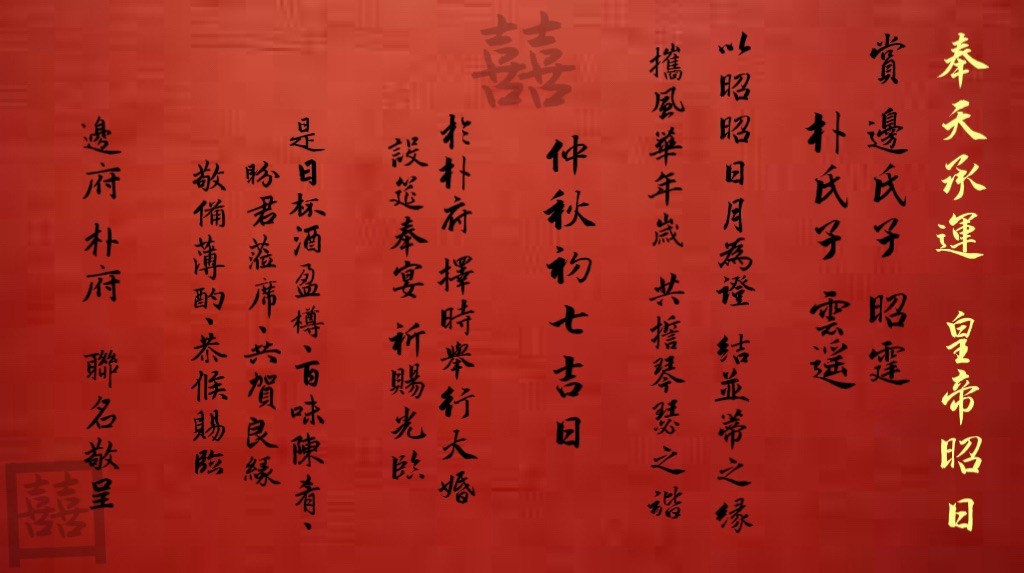 奉天承運 皇帝昭日
賞 邊氏子 昭霆
朴氏子 雲遥
以昭昭日月為證 結並蒂之緣
攜風華年歲 共誓琴瑟之諧
囍
仲秋初七吉日
於朴府 擇時舉行大婚
設筵奉宴 祈賜光臨
是日杯酒盈樽、百味陳肴、
盼君蒞席、共賀良緣
敬備薄酌、恭候賜臨
邊府朴府 聯名敬呈
囍